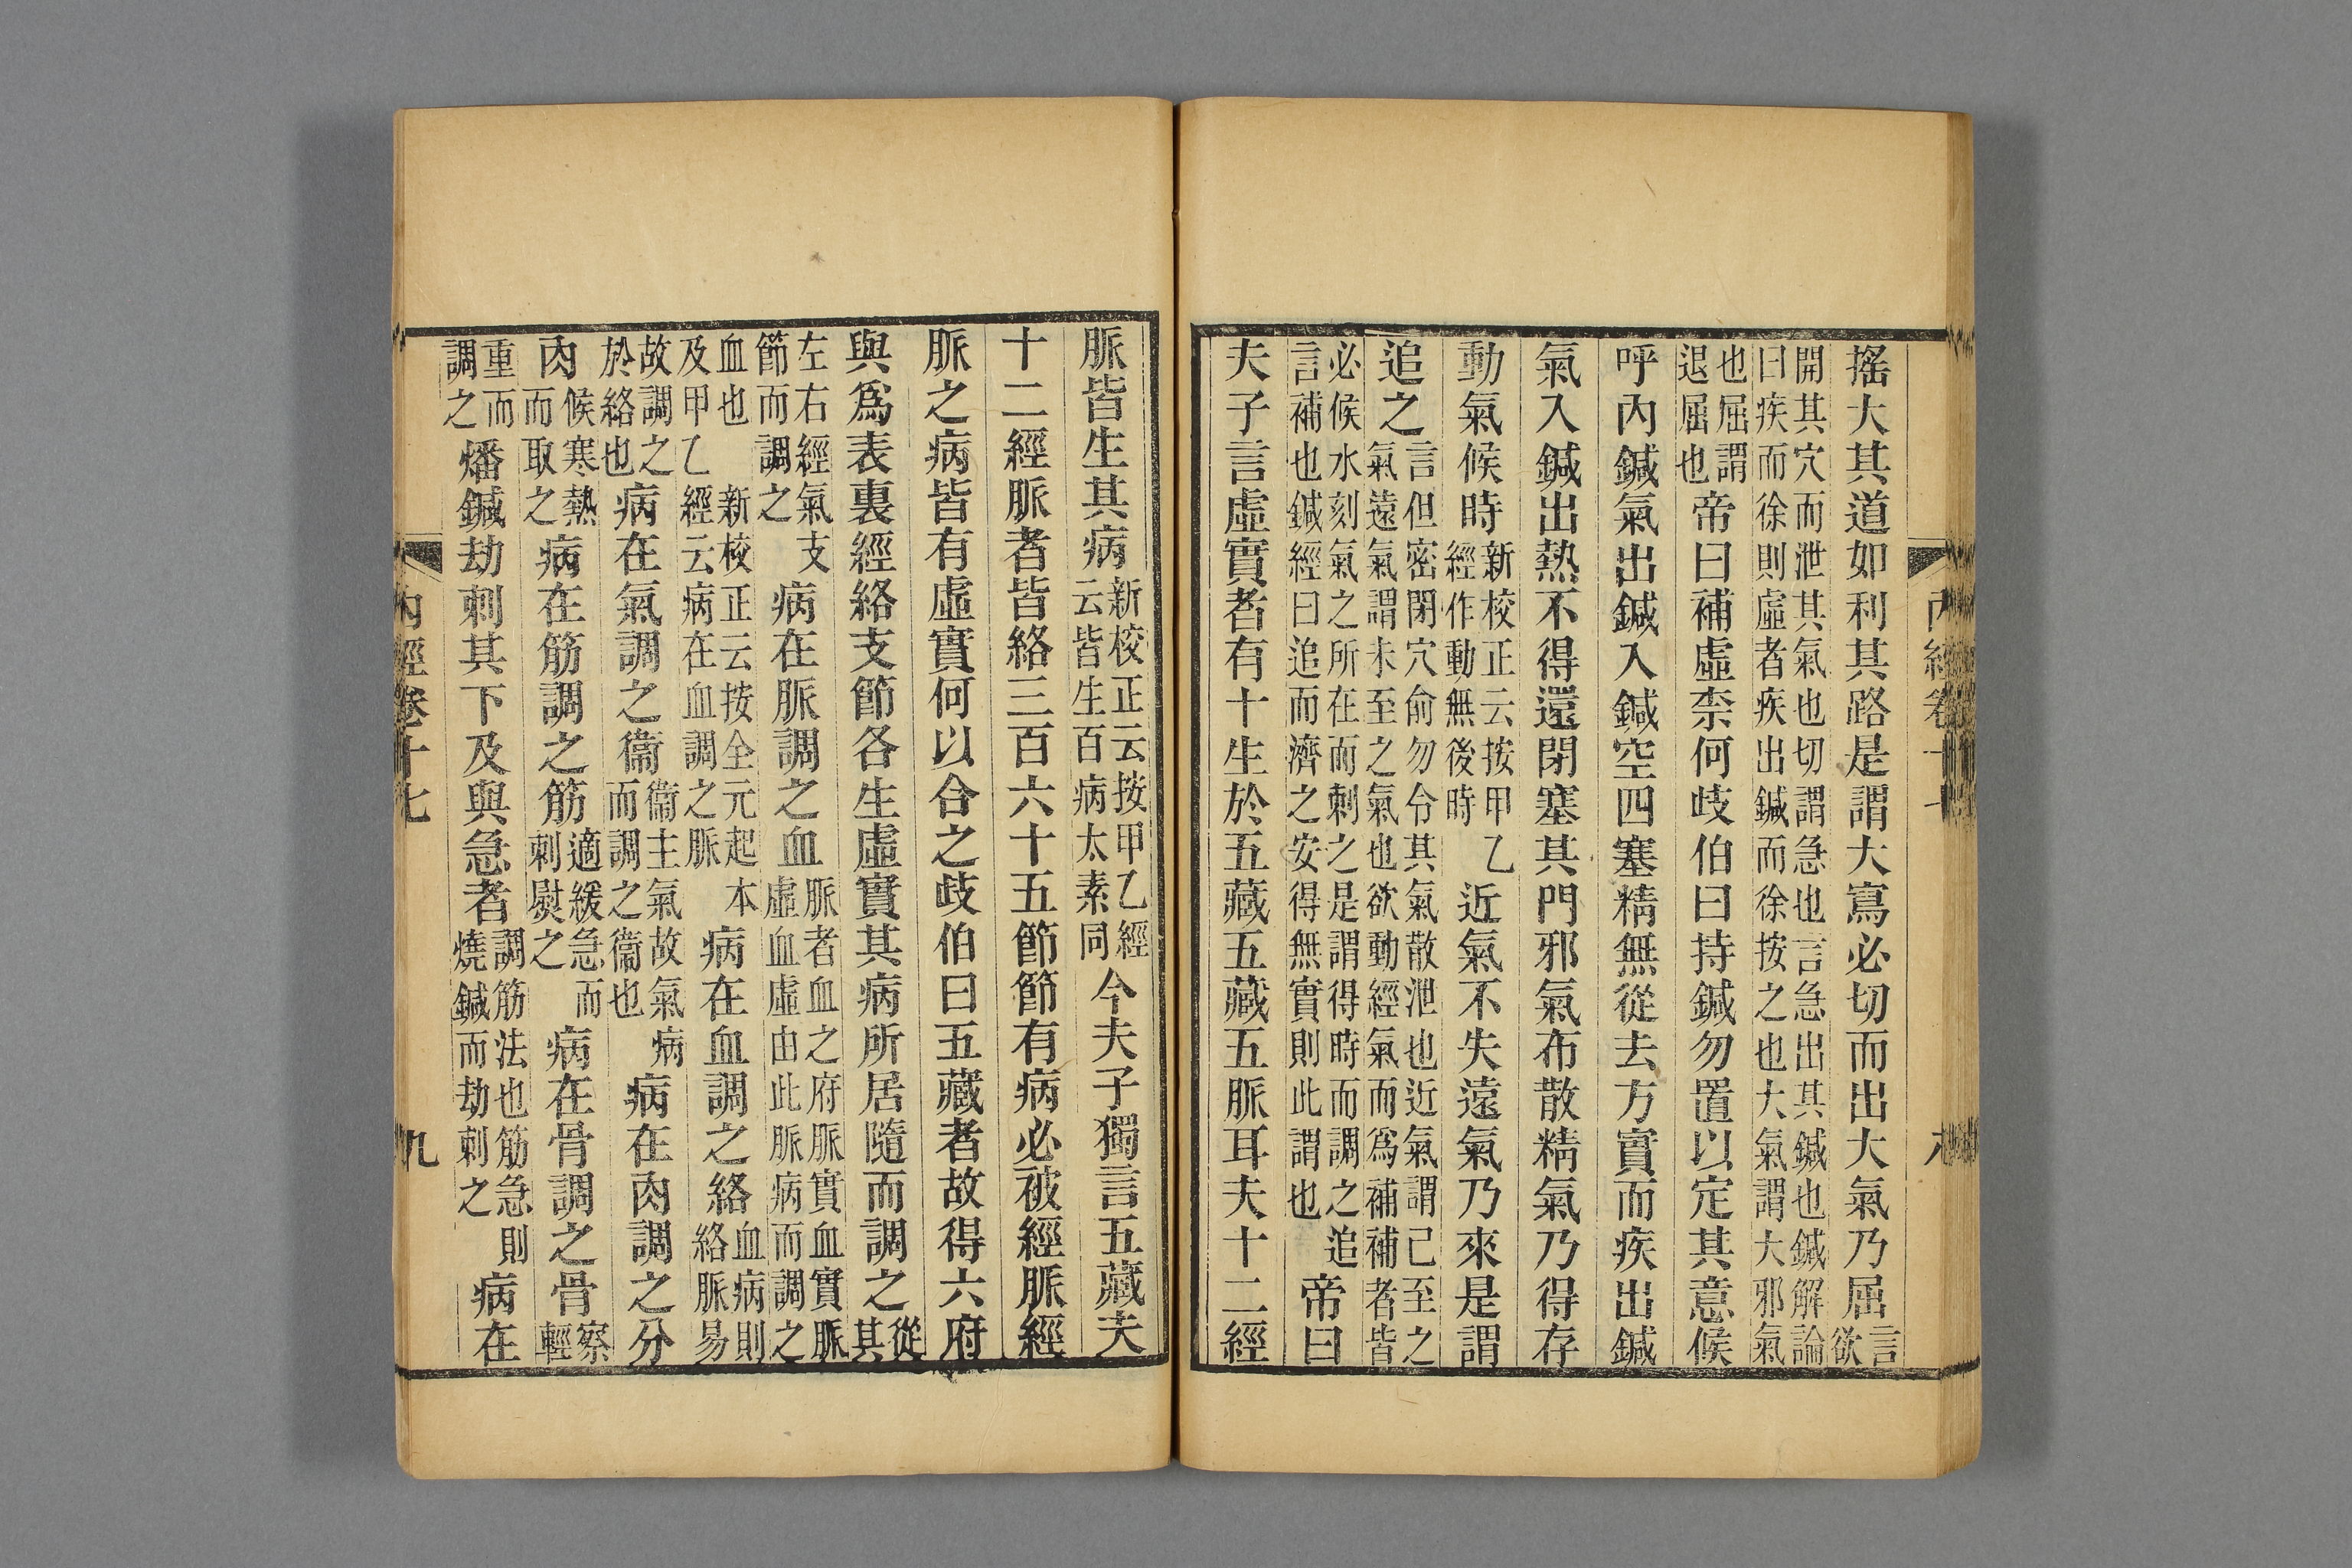 搖大其道如利其路是謂大寫必切而出大氣乃屈言欲
開其穴而泄其氣也切謂急也言急出其鍼也鍼解論
曰疾而徐則虛者疾出鍼而徐按之也大氣謂大邪氣
也屈謂退屈也帝曰補虛柰何歧伯曰持鍼勿置以定其意候
呼內鍼氣出鍼入鍼空四塞精無從去方實而疾出鍼
氣入鍼出熱不得還閉塞其門邪氣布散精氣乃得存
動氣候時新校正云按甲乙經作動無後時近氣不失遠氣乃來是謂
追之言但密閉穴俞勿令其氣散泄也近氣謂已至之氣遠氣謂未至之氣也欲動經氣而爲補補者皆
必候水刻氣之所在而刺之是謂得時而調之追言補也鍼經曰追而濟之安得無實則此謂也帝曰
夫子言虛實者有十生於五藏五藏五脈耳夫十二經
脈皆生其病新校正云按甲乙經云皆生百病太素同今夫子獨言五藏夫
十二經脈者皆絡三百六十五節節有病必被經脈經
脈之病皆有虛實何以合之歧伯曰五藏者故得六府
與爲表裏經絡支節各生虛實其病所居隨而調之從其
左右經氣支節而調之病在脈調之血脈者血之府脈實血實脈虛血虛由此脈病而調之
血也新校正云按全元起本及甲乙經云病在血調之脈病在血調之絡血病則絡脈易
故調之於絡也病在氣調之衞衞主氣故氣病而調之衞也病在肉調之分
肉候寒熱而取之病在筋調之筋適緩急而刺熨之病在骨調之骨察輕
重而調之燔鍼劫刺其下及與急者調筋法也筋急則燒鍼而劫刺之病在
內經卷十七 九